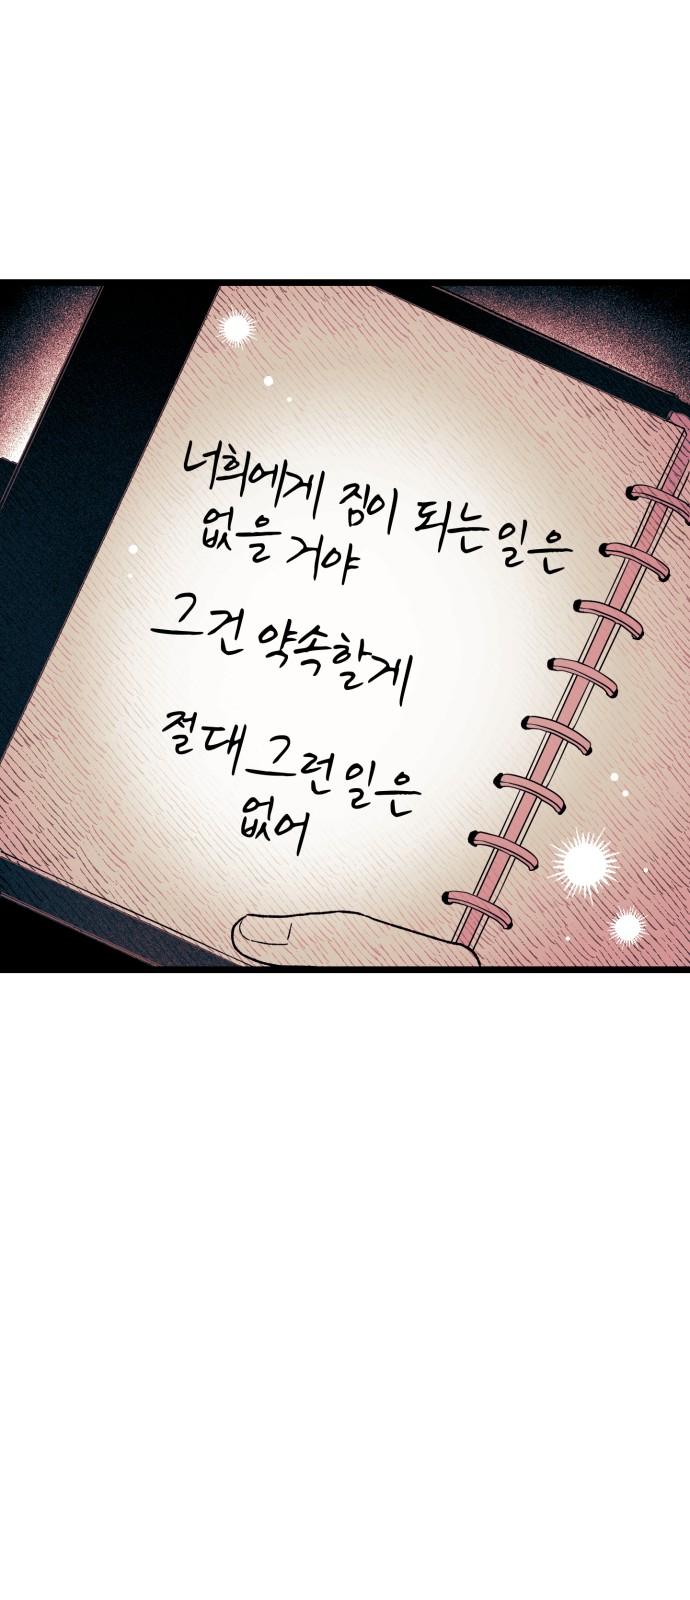 너희에게 짐이 되는 일은
없을 거야
그건 약속할게
절대 그런 일은
없어